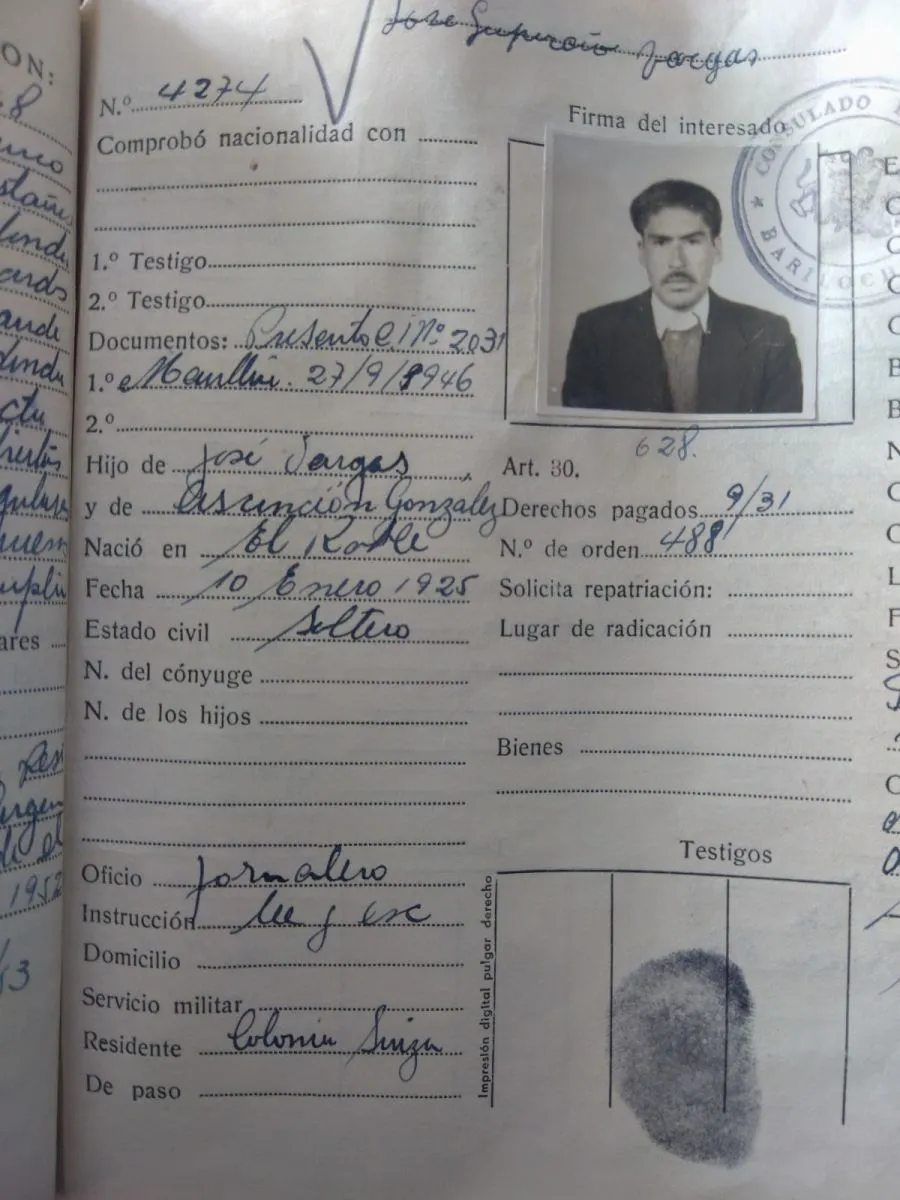 Jose Vargas
N.º 4274
Comprobó nacionalidad con
Firma del interesado
CONSULADO
BARILOCHE
1.º Testigo
2.º Testigo
Documentos: Presenta C.I Nº 2031
1.º Maullin. 27/9/1946
2.º
628.
Hijo de José Vargas
y de Ascunción Gonzalez
Nació en El Roble
Fecha 10 Enero 1925
Estado civil Soltero
N. del cónyuge
N. de los hijos
Art. 30.
Derechos pagados 9/31
N.º de orden 488
Solicita repatriación:
Lugar de radicación
Bienes
Oficio Jornalero
Instrucción lee y esc
Domicilio
Servicio militar
Residente Colonia Suiza
De paso
Testigos
Impresión digital pulgar derecho
ON:
ares
1952
/53